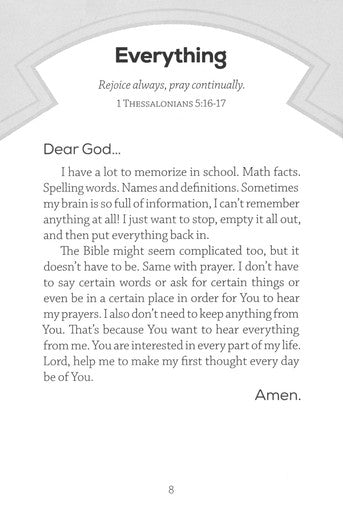 Everything
Rejoice always, pray continually.
1 Thessalonians 5:16-17
Dear God...
I have a lot to memorize in school. Math facts.
Spelling words. Names and definitions. Sometimes
my brain is so full of information, I can't remember
anything at all! I just want to stop, empty it all out,
and then put everything back in.
The Bible might seem complicated too, but it
doesn't have to be. Same with prayer. I don't have
to say certain words or ask for certain things or
even be in a certain place in order for You to hear
my prayers. I also don't need to keep anything from
You. That's because You want to hear everything
from me. You are interested in every part of my life.
Lord, help me to make my first thought every day
be of You.
Amen.
8